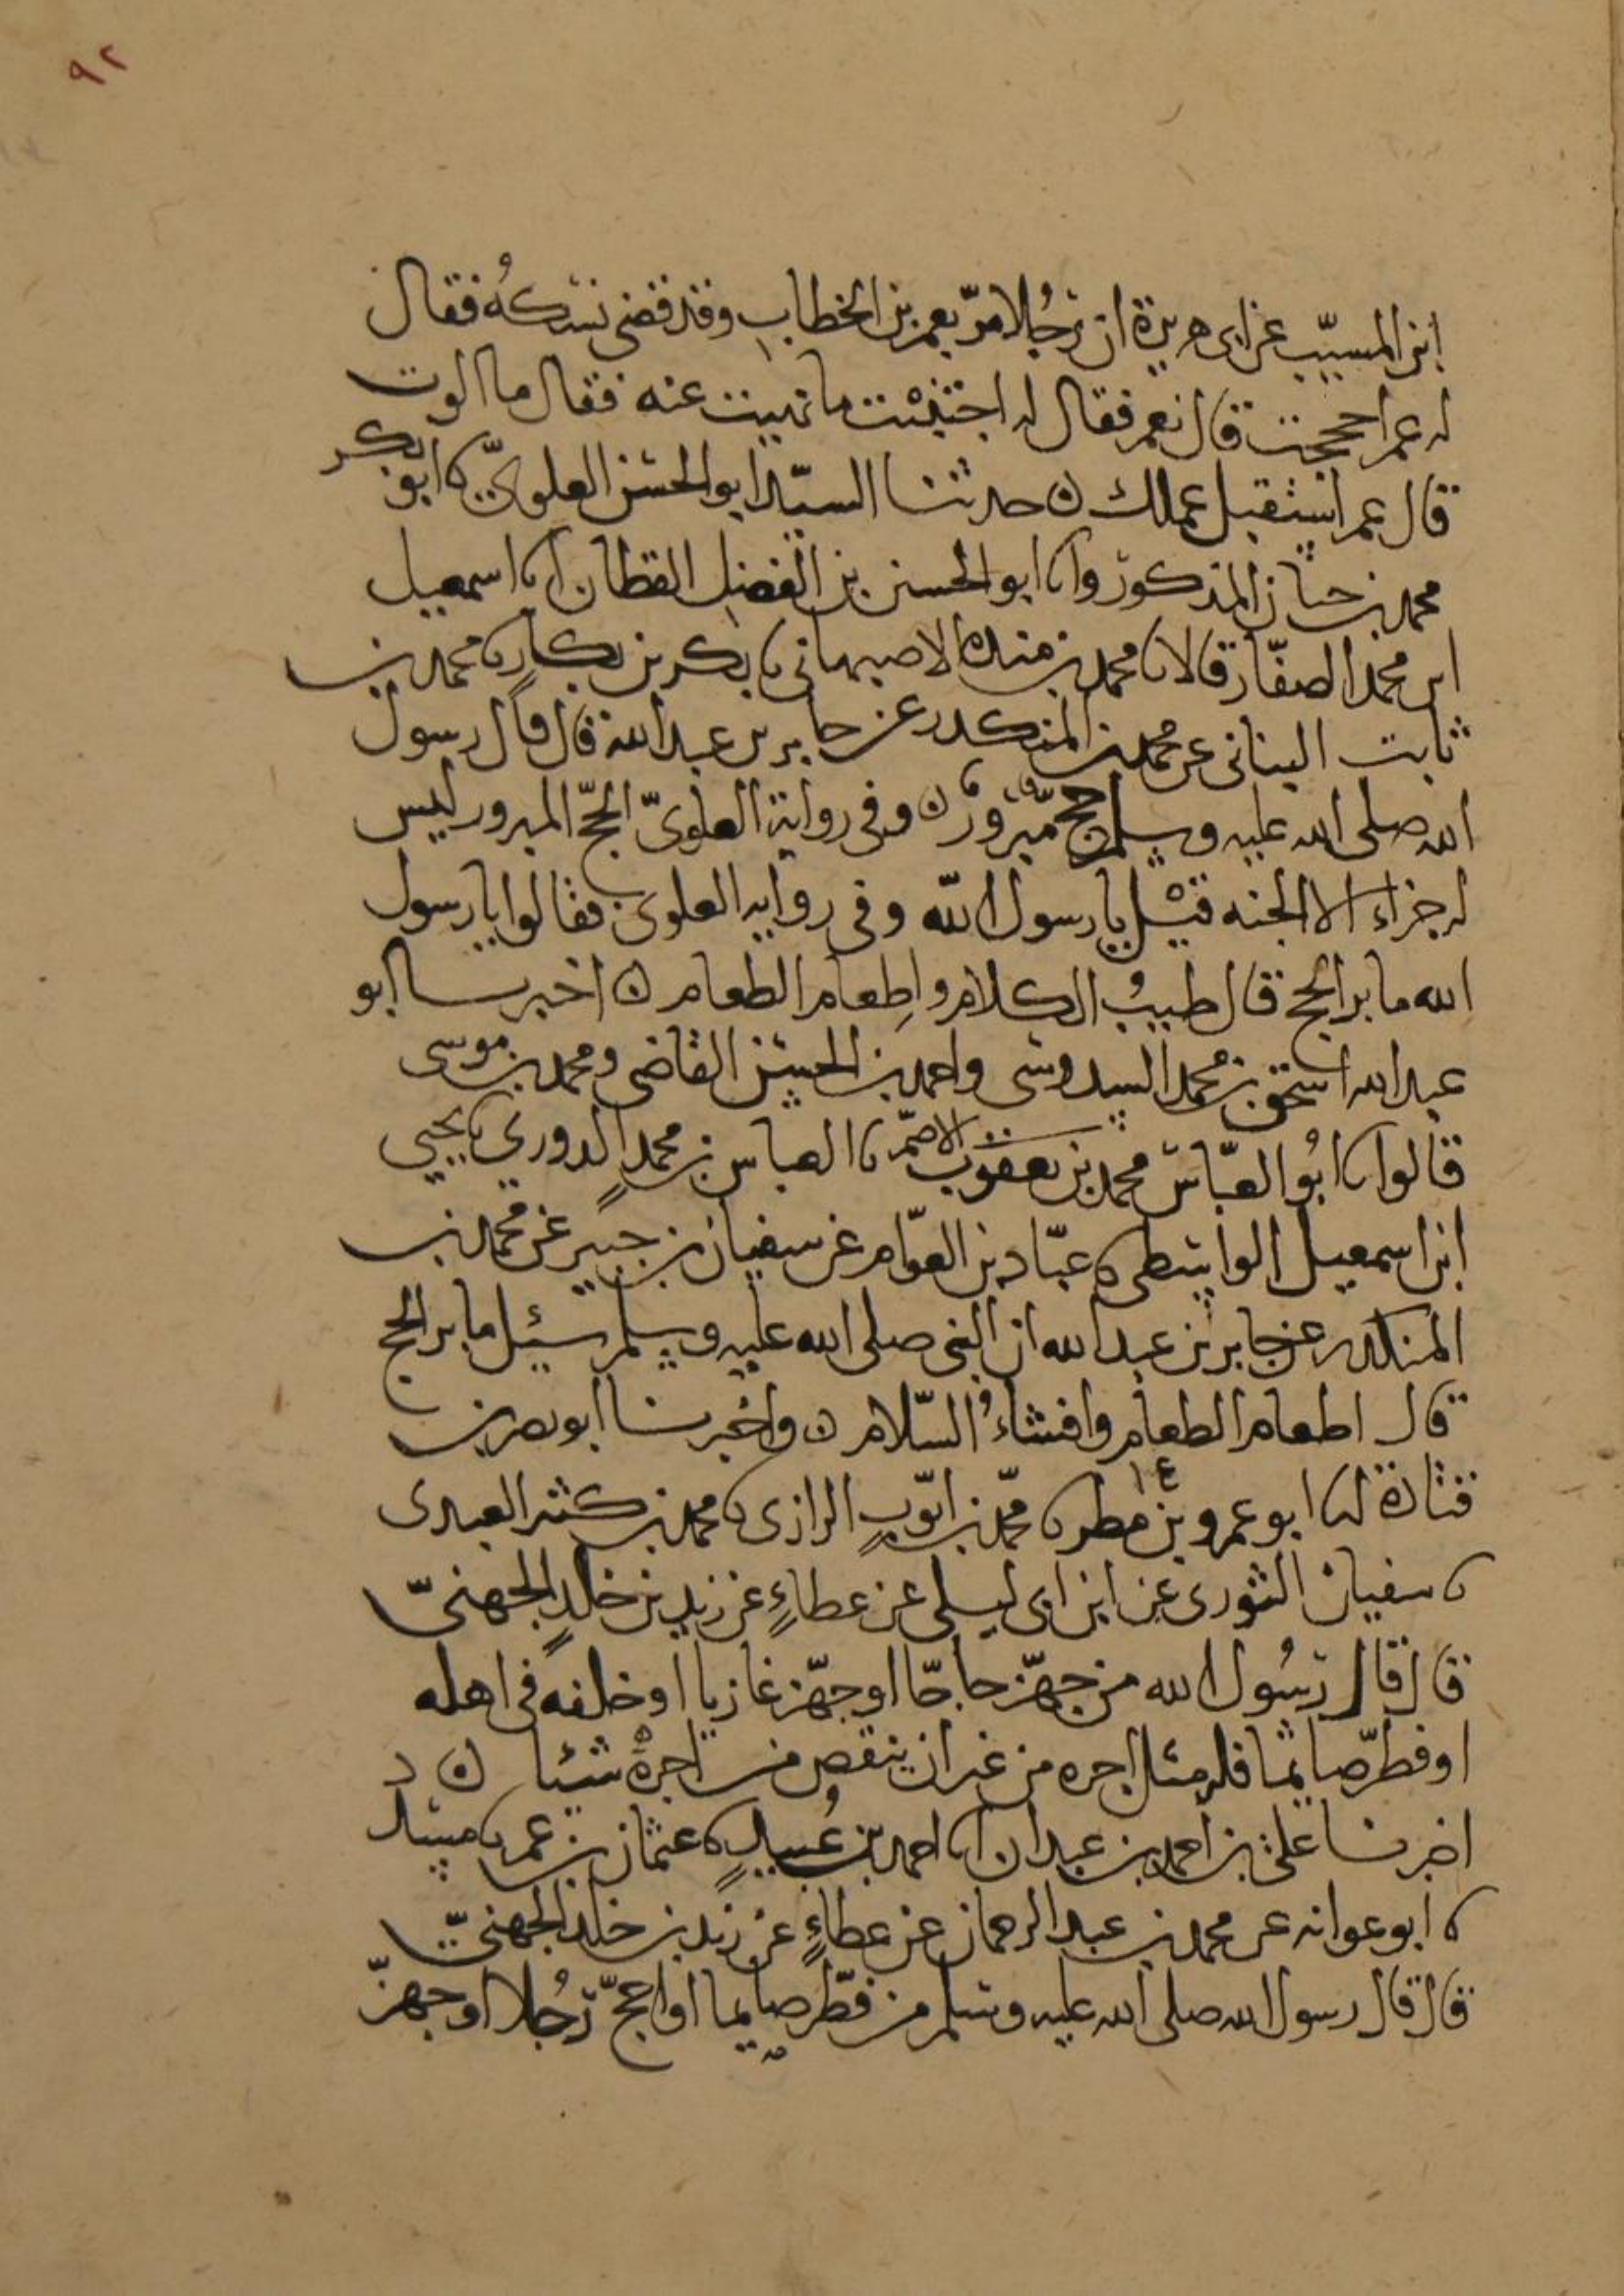 ٩٢
ابن المسيّب عن ابى هريرة ان رجُلا مرّ بعمر بن الخطاب وقد قضى نسكهُ فقال
له عمر احججت قال نعم فقال له اجتنبت ما نهيت عنه فقال ما الوت
قال عمر استقبل عملك ن حدثنا السيّد ابو الحسن العلويّ نا ابو بكر
محمد بن حبان المذكور وانا ابو الحسين بن الفضل القطان انا اسمعيل
ابن محمد الصفّار قالا نا محمد بن منده الاصبهانى نا بكر بن بكارٍ نا محمد بن
ثابت البنانى عن محمد بن المنكدر عن جابر بن عبد الله قال قال رسول
الله صلى الله عليه وسلم حج مبرورٌ ن وفى رواية العلويّ الحجّ المبرور ليس
له جزاء الا الجنه قيل يا رسول الله وفى روايه العلوى فقالوا يا رسول
الله ما بر الحج قال طيبُ الكلام واِطعام الطعام ن اخبرنا ابو
عبد الله اسحق بن محمد السدوسى واحمد بن الحسن القاضى ومحمد بن موسى
قالوا نا ابُو العبّاس محمد بن يعقوب الاصمّ نا العباس بن محمدٍ الدوري نا يحيى
ابن اسمعيل الواسطى نا عبّاد بن العوّام عن سفيان بن حسين عن محمد بن
المنكدر عن جابر بن عبد الله ان النبى صلى الله عليه وسلم سئل ما بر الحج
قال اطعام الطعام وافشاءُ السّلام ن واخبرنا ابو نصر بن
قتادة انا ابو عمرو بن مطر نا محمّد بن ايّوبٍ الرازى نا محمد بن كثير العبدى
نا سفيان الثورى عن ابن ابى ليلى عن عطاءٍ عن زيد بن خالدٍ الجهنىّ
قال قال رسُول الله من جهّز حاجّا او جهّز غازيا او خلفه فى اهله
او فطّر صايما فله مثل اجره من غير ان ينقص من اجرهْ شئيا ن
اخبرنا على بن احمد بن عبدان انا احمد بن عُبيدٍ نا عثمان بن عمر نا مسدد
نا ابو عوانه عن محمد بن عبد الرحمان عن عطاءٍ عن زيد بن خلد الجهنىّ
قال قال رسول الله صلى الله عليه وسلم من فطّر صايما او احجّ رجُلا او جهزّ